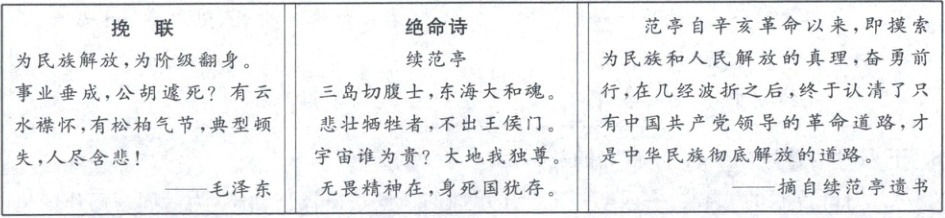 挽 联
为民族解放,为阶级翻身。
事业垂成,公胡遽死?有云
水襟怀,有松柏气节,典型顿
失,人尽含悲!
——毛泽东
绝命诗
续范亭
三岛切腹士,东海大和魂。
悲壮牺牲者,不出王侯门。
宇宙谁为贵?大地我独尊。
无畏精神在,身死国犹存。
范亭自辛亥革命以来,即摸索
为民族和人民解放的真理,奋勇前
行,在几经波折之后,终于认清了只
有中国共产党领导的革命道路,才
是中华民族彻底解放的道路。
——摘自续范亭遗书